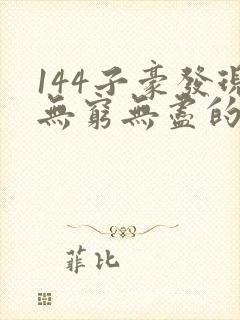 144子豪發現
無窮無盡的
菲比